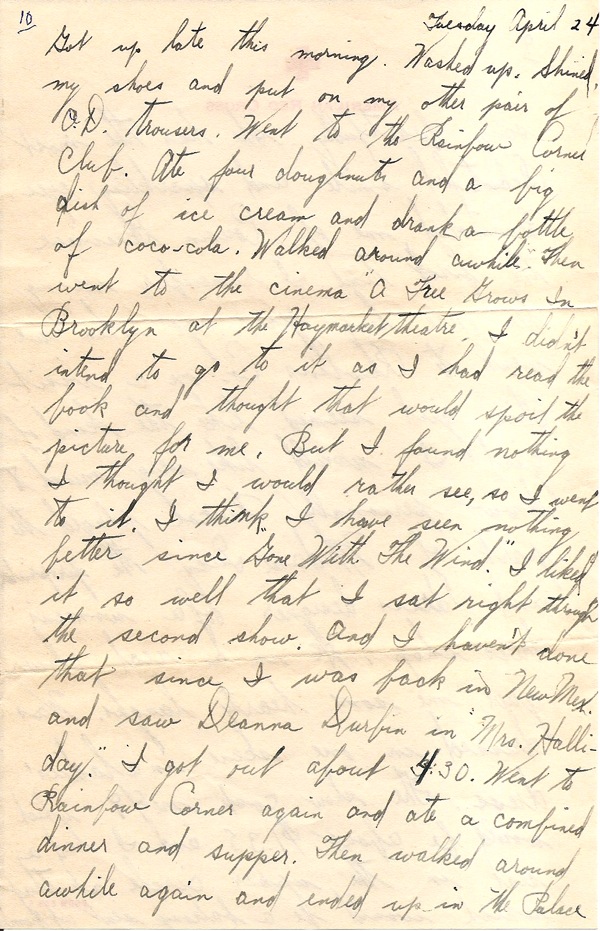 10
Tuesday April 24
Got up late this morning. Washed up. Shined
my shoes and put on my other pair of
O.D. trousers. Went to the Rainbow Corner
Club. Ate four doughnuts and a big
dish of ice cream and drank a bottle
of coco-cola. Walked around awhile. Then
went to the cinema "A Tree Grows In
Brooklyn at the Haymarket theatre. I didn't
intend to go to it as I had read the
book and thought that would spoil the
picture for me. But I found nothing
I thought I would rather see, so I went
to it. I think I have seen nothing
better since "Gone With The Wind." I liked
it so well that I sat right through
the second show. And I haven't done
that since I was back in New Mex.
and saw Deanna Durbin in "Mrs. Halli-
day." I got out about 4:30. Went to
Rainbow Corner again and ate a combined
dinner and supper. Then walked around
awhile again and ended up in the Palace